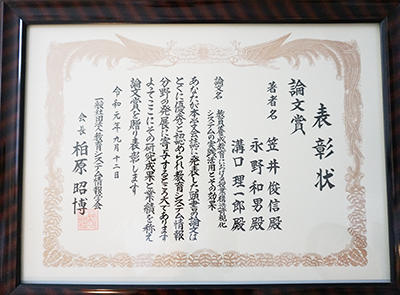 表彰状
論文賞
著者名 笠井俊信殿
永野和男殿
溝口理一郎殿
論文名 教員養成教育における授業構造可視化
システムの実践活用とその効果
あなたが本学会誌に発表した頭書の論文は
とくに優秀と認められ教育システム情報
分野の発展に寄与するところ大であります
よってここにその研究成果と業績を称え
論文賞を贈り表彰します
令和元年九月十二日
一般社団法人教育システム情報学会
会長 柏原昭博